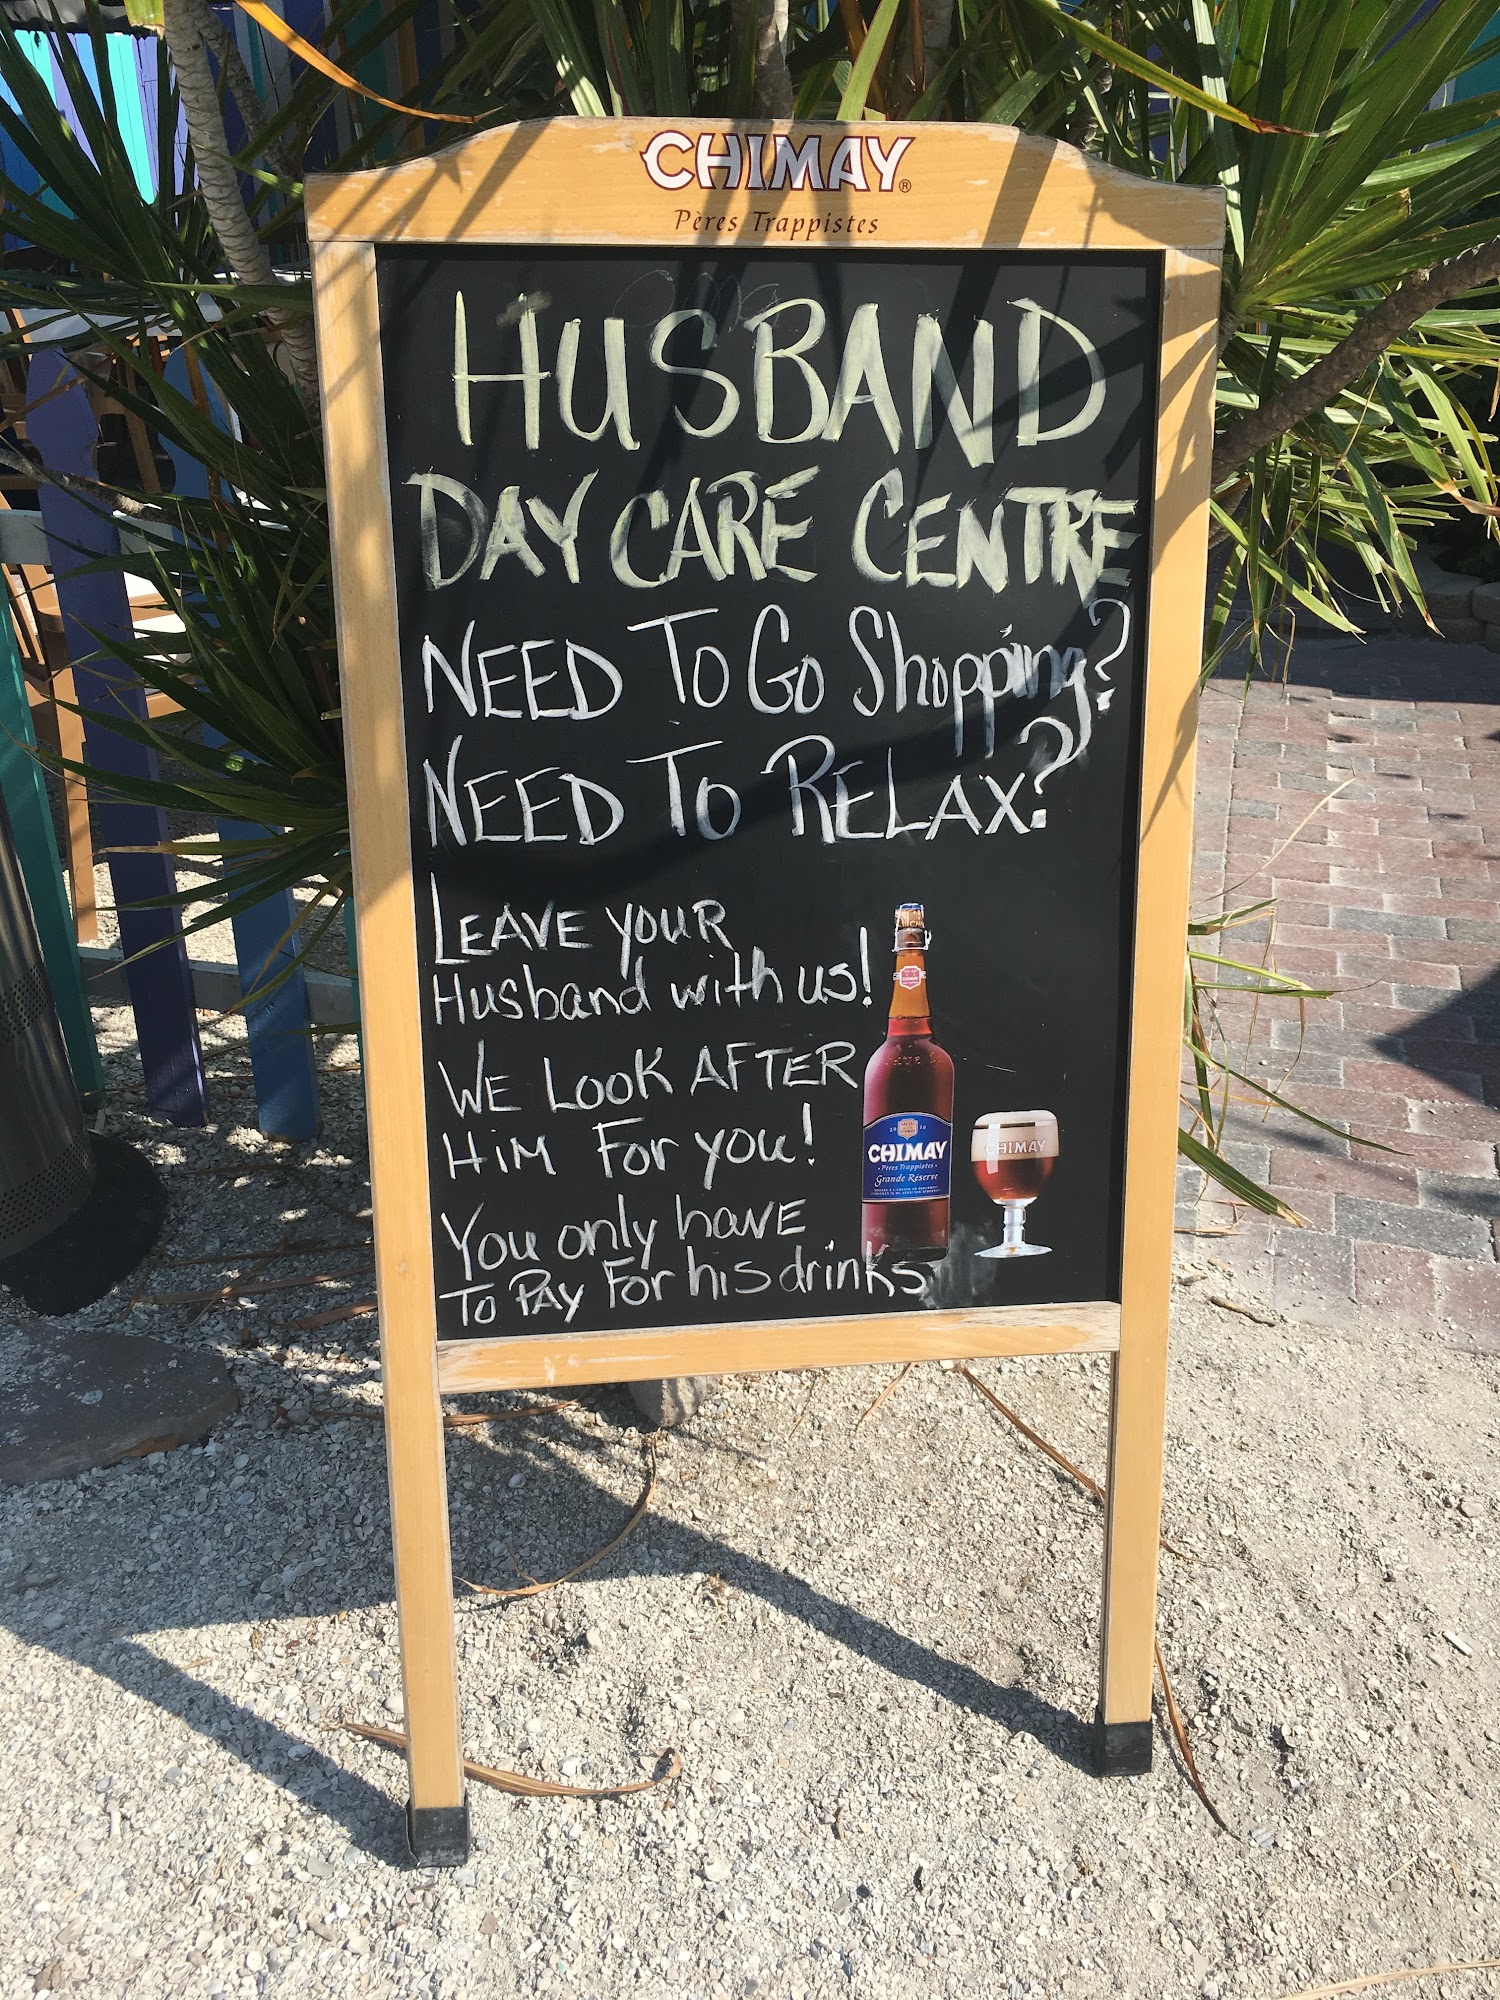 CHIMAY®
Pères Trappistes
HUSBAND
DAY CARE CENTRE
NEED TO GO Shopping?
NEED TO RELAX?
LEAVE YOUR
Husband with us!
WE LOOK AFTER
HiM For you!
You only have
To PAY For his drinks
CHIMAY
Pères Trappistes
Grande Réserve
CHIMAY